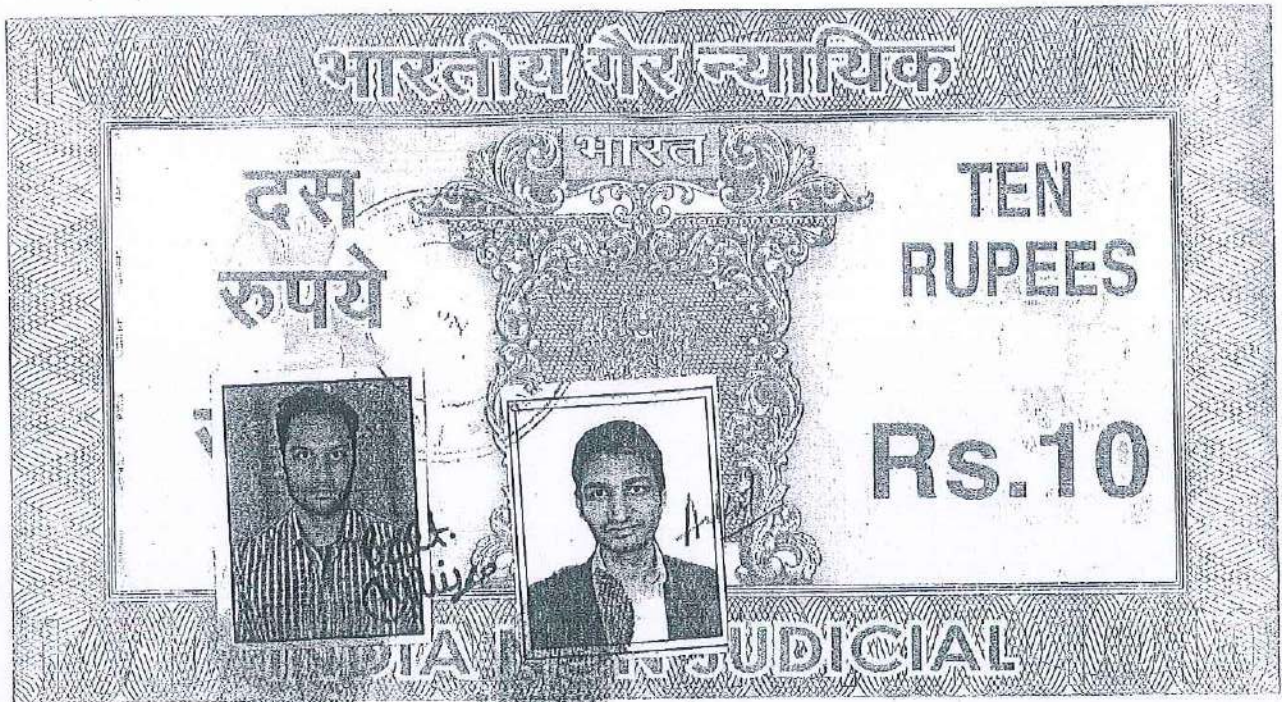 भारतीय गैर न्यायिक
भारत
दस
रुपये
TEN
RUPEES
Rs.10
INDIA NON JUDICIAL